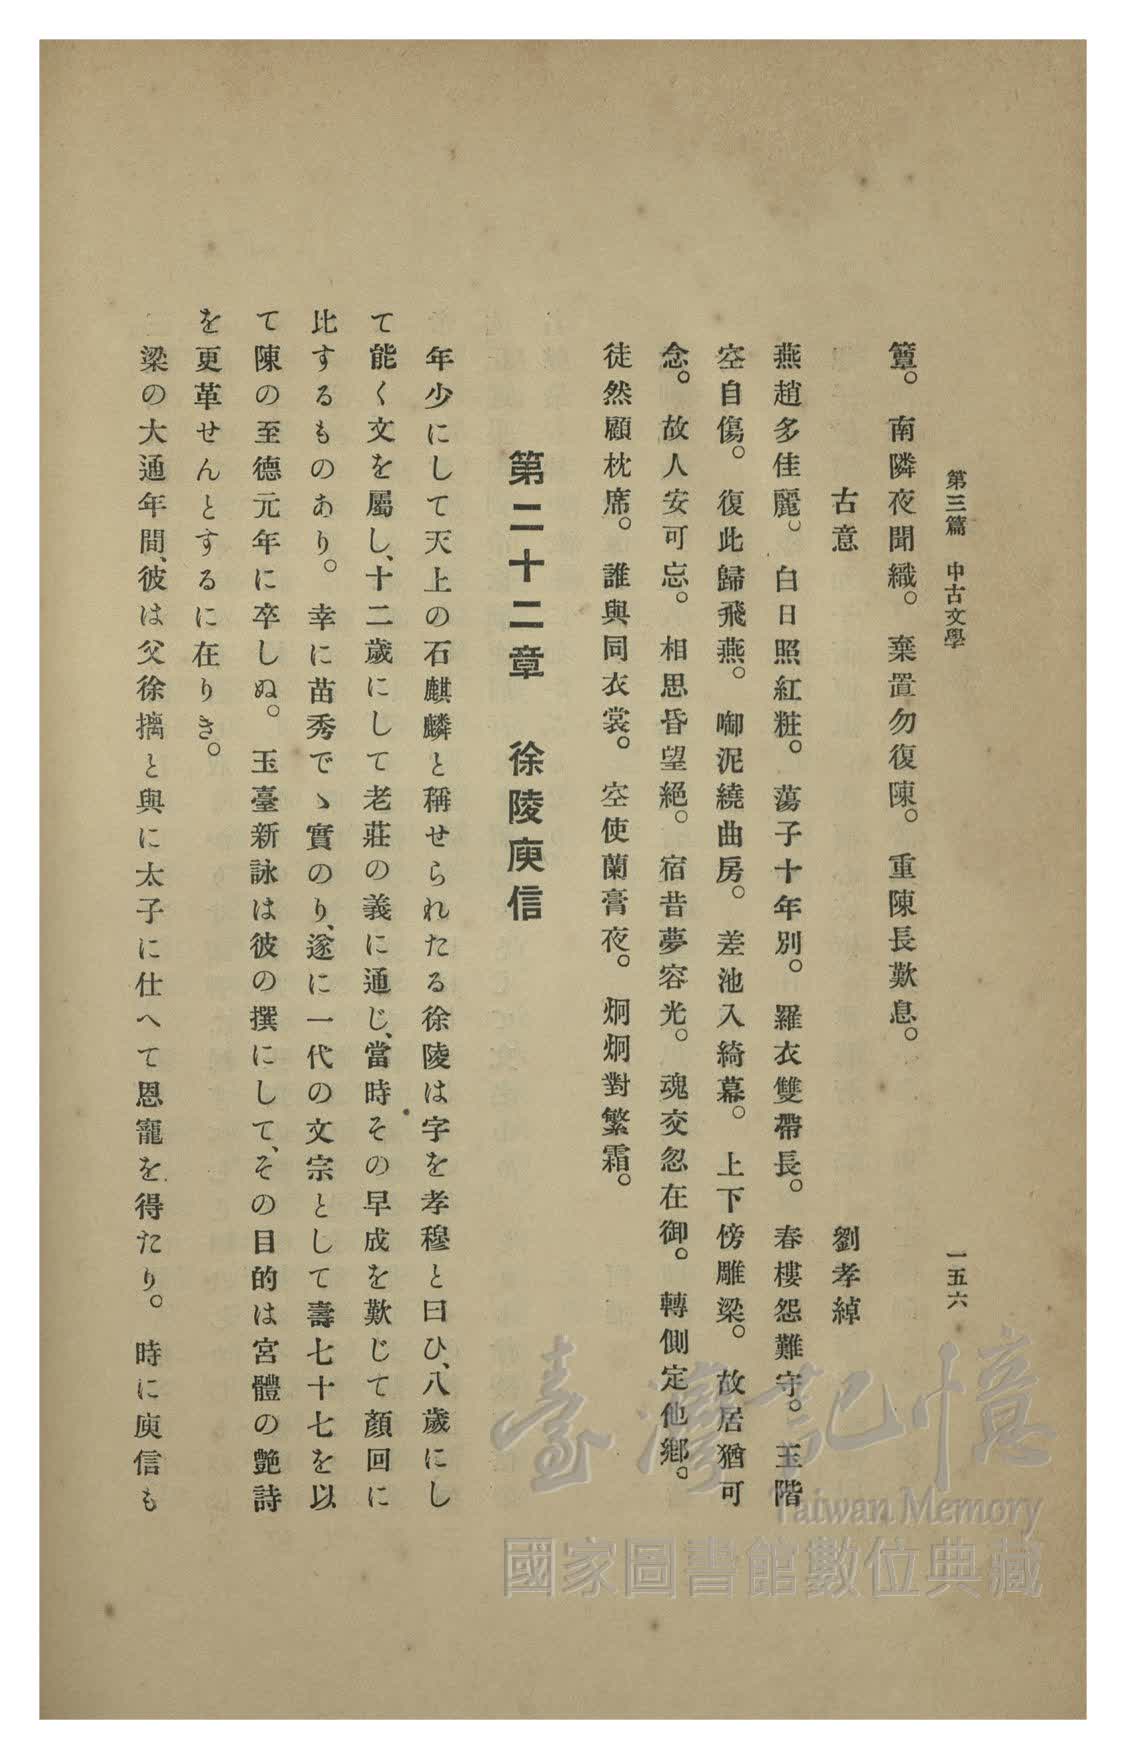 第三篇　中古文學　一五六
簟。　南隣夜聞織。　棄置勿復陳。　重陳長歎息。
古意　劉孝綽
燕趙多佳麗。　白日照紅粧。　蕩子十年別。　羅衣雙帶長。　春樓怨難守。　玉階
空自傷。　復此歸飛燕。　啣泥繞曲房。　差池入綺幕。　上下傍雕梁。　故居猶可
念。　故人安可忘。　相思昏望絕。　宿昔夢容光。　魂交忽在御。　轉側定他鄉。
徒然顧枕席。　誰與同衣裳。　空使蘭膏夜。　炯炯對繁霜。
第二十二章　徐陵庾信
年少にして天上の石麒麟と稱せられたる徐陵は字を孝穆と曰ひ、八歲にし
て能く文を屬し、十二歲にして老莊の義に通じ、當時その早成を歎じて顏回に
比するものあり。　幸に苗秀でゝ實のり、遂に一代の文宗として壽七十七を以
て陳の至德元年に卒しぬ。　玉臺新詠は彼の撰にして、その目的は宮體の艷詩
を更革せんとするに在りき。
梁の大通年間、彼は父徐摛と與に太子に仕へて恩寵を得たり。　時に庾信も
臺灣記憶
Taiwan Memory
國家圖書館數位典藏